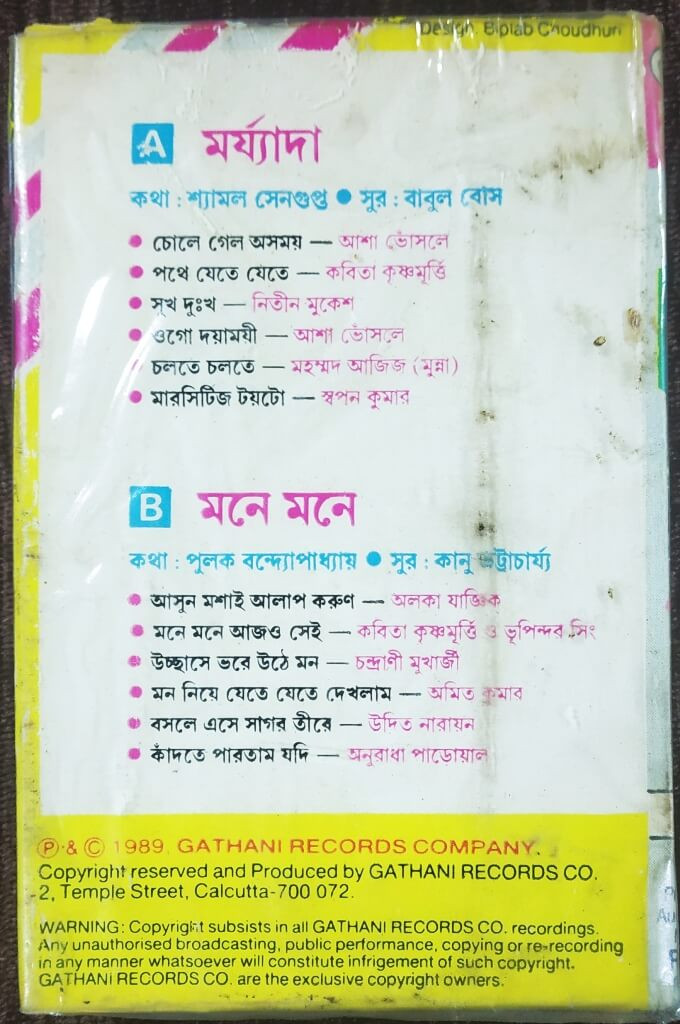 Design. Biplab Choudhuri
A মর্য্যাদা
কথা : শ্যামল সেনগুপ্ত ● সুর : বাবুল বোস
● চোলে গেল অসময় — আশা ভোঁসলে
● পথে যেতে যেতে — কবিতা কৃষ্ণমূর্ত্তি
● সুখ দুঃখ — নিতীন মুকেশ
● ওগো দয়াময়ী — আশা ভোঁসলে
● চলতে চলতে — মহম্মদ আজিজ (মুন্না)
● মারসিটিজ টয়টো — স্বপন কুমার
B মনে মনে
কথা : পুলক বন্দ্যোপাধ্যায় ● সুর : কানু ভট্টাচার্য্য
● আসুন মশাই আলাপ করুণ — অলকা যাজ্ঞিক
● মনে মনে আজও সেই — কবিতা কৃষ্ণমূর্ত্তি ও ভূপিন্দর সিং
● উচ্ছাসে ভরে উঠে মন — চন্দ্রাণী মুখার্জী
● মন নিয়ে যেতে যেতে দেখলাম — অমিত কুমার
● বসলে এসে সাগর তীরে — উদিত নারায়ন
● কাঁদতে পারতাম যদি — অনুরাধা পাড়োয়াল
Ⓟ & © 1989. GATHANI RECORDS COMPANY.
Copyright reserved and Produced by GATHANI RECORDS CO.
2, Temple Street, Calcutta-700 072.
WARNING: Copyright subsists in all GATHANI RECORDS CO. recordings.
Any unauthorised broadcasting, public performance, copying or re-recording
in any manner whatsoever will constitute infrigement of such copyright.
GATHANI RECORDS CO. are the exclusive copyright owners.